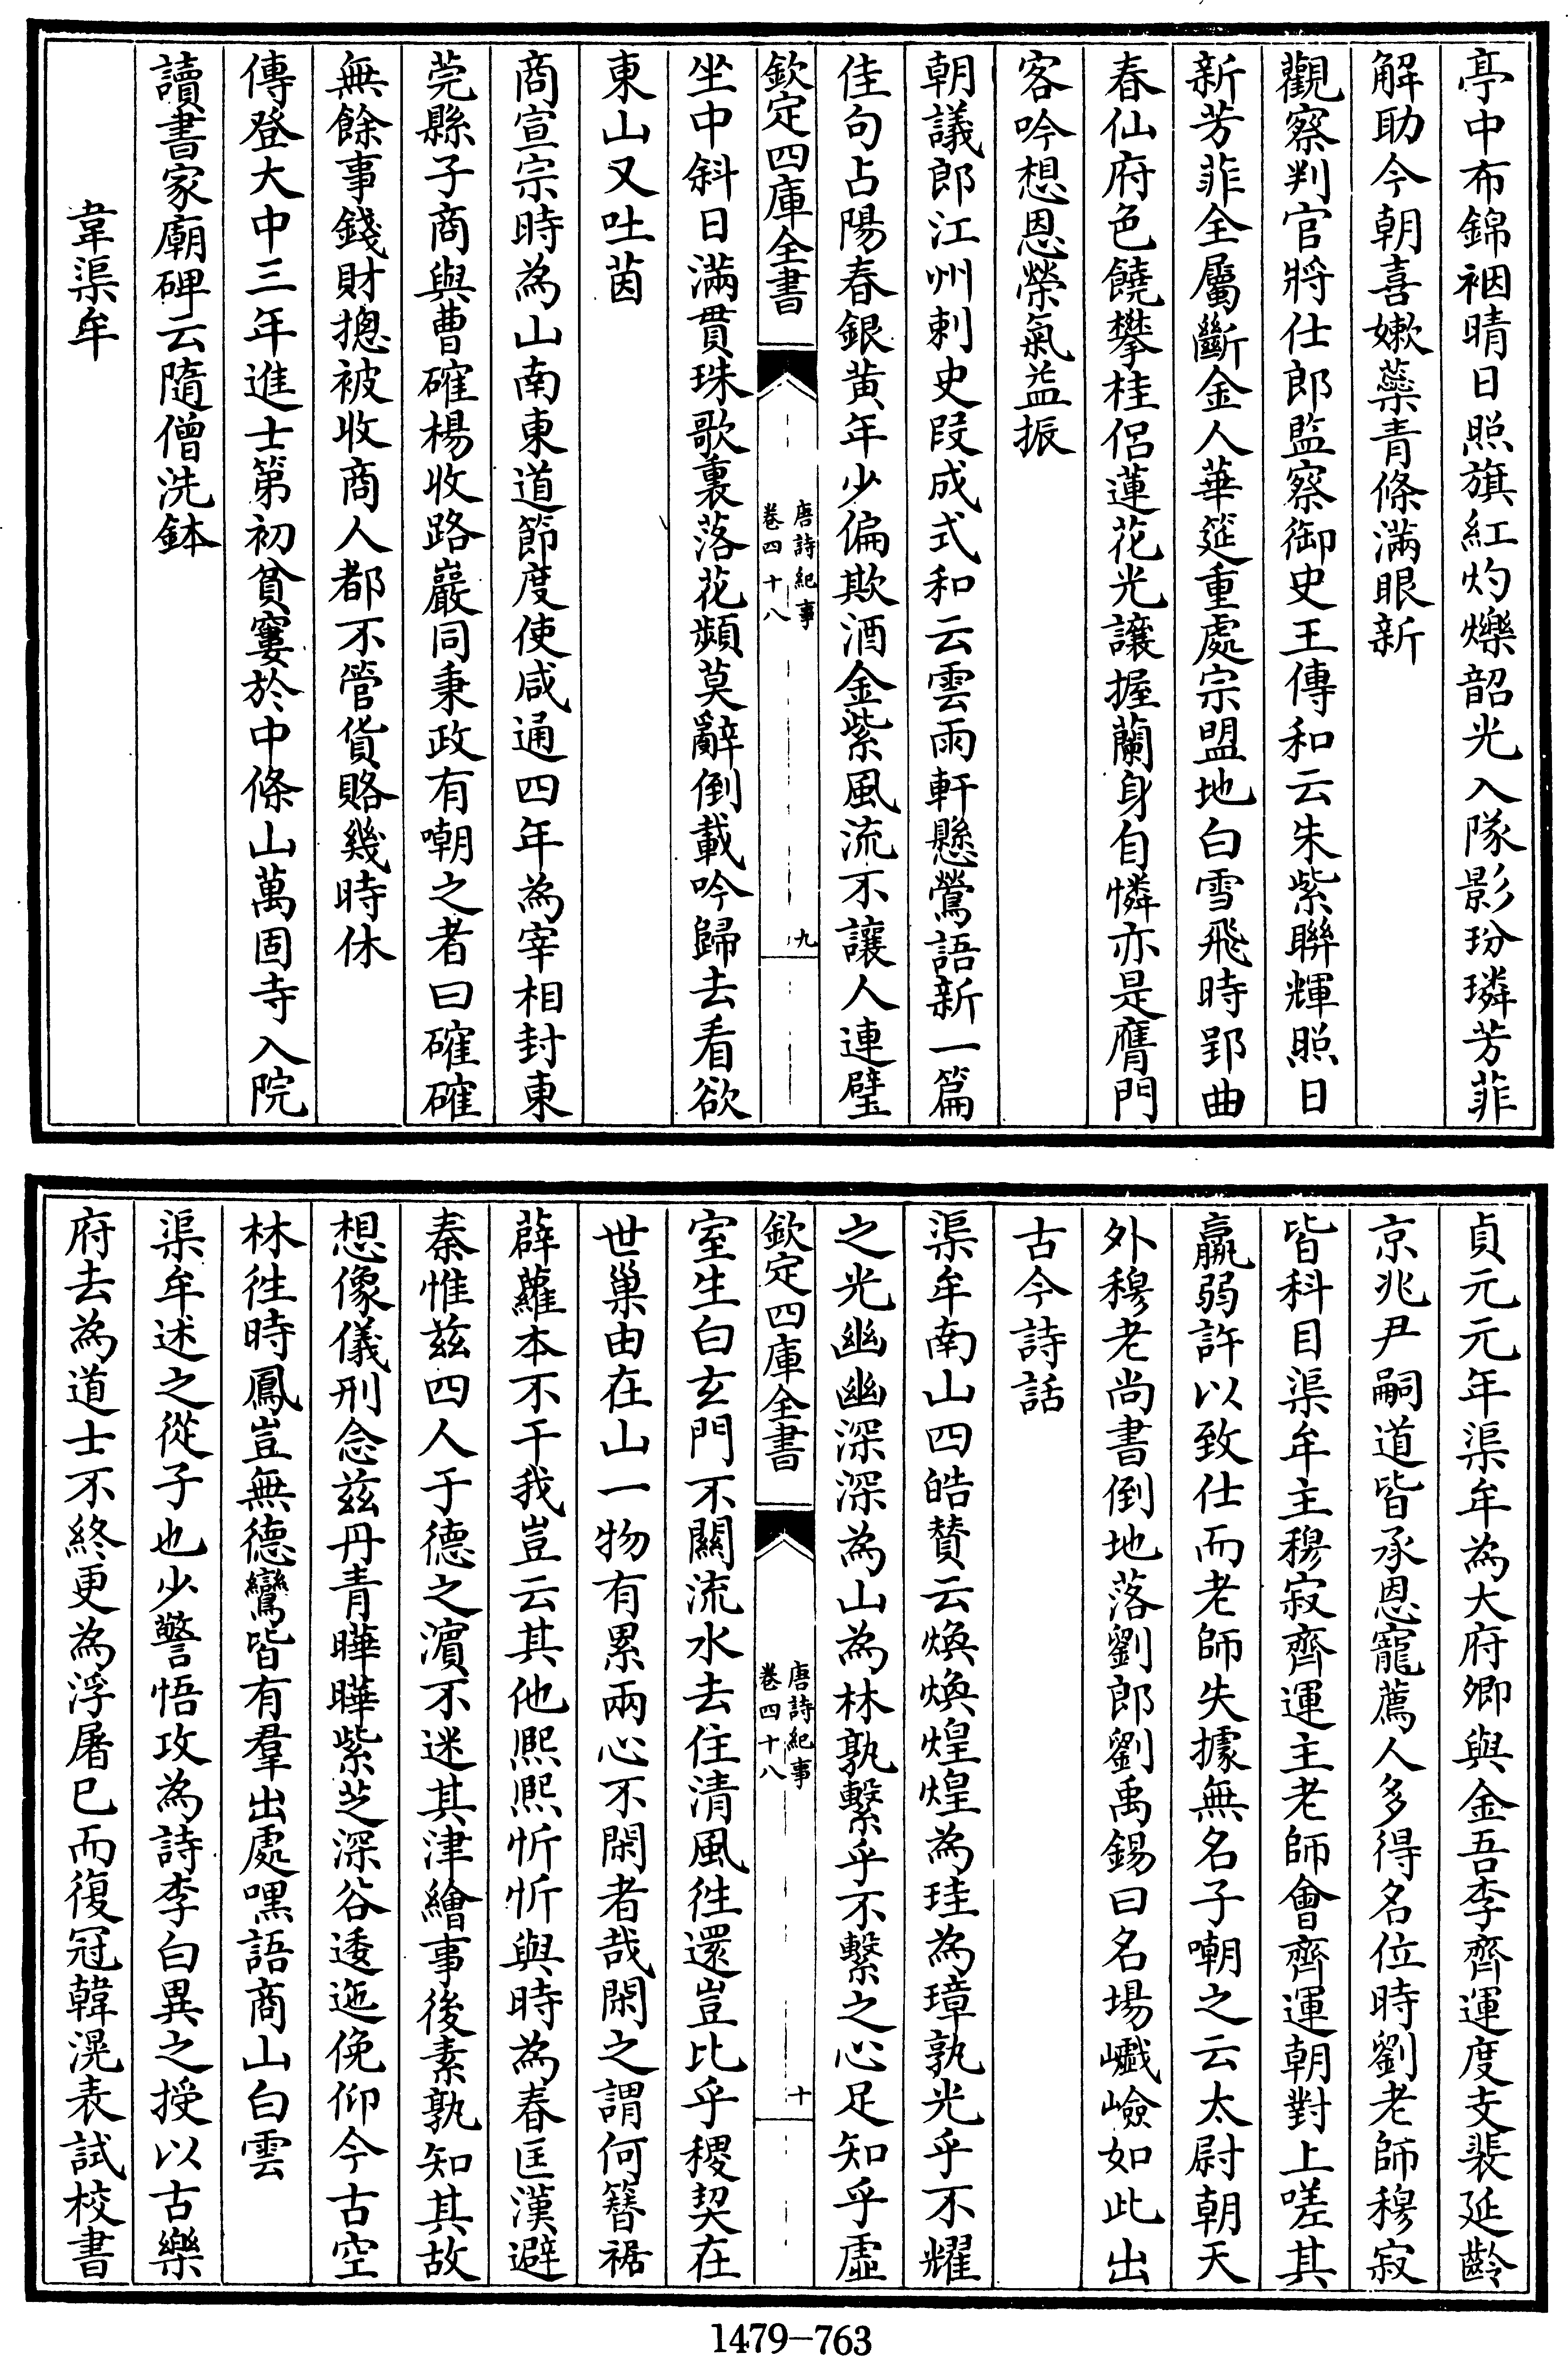 亭中布錦裀晴日照旗紅灼爍韶光入隊影玢璘芳菲
解助今朝喜嫰蘂青條滿眼新
觀察判官將仕郎監察御史王傳和云朱紫聯輝照日
新芳菲全屬斷金人華筵重處宗盟地白雪飛時郢曲
春仙府色饒攀桂侶蓮花光讓握蘭身自憐亦是膺門
客吟想恩榮氣益振
朝議郎江州刺史段成式和云雲雨軒懸鶯語新一篇
佳句占陽春銀黄年少偏欺酒金紫風流不讓人連璧
欽定四庫全書
唐詩紀事
卷四十八
九
坐中斜日滿貫珠歌裏落花頻莫辭倒載吟歸去看欲
東山又吐茵
商宣宗時為山南東道節度使咸通四年為宰相封東
莞縣子商與曹確楊收路巖同秉政有嘲之者曰確確
無餘事錢財摠被收商人都不管貨賂幾時休
傳登大中三年進士第初貧窶於中條山萬固寺入院
讀書家廟碑云隨僧洗鉢
韋渠牟
貞元元年渠牟為大府卿與金吾李齊運度支裴延齡
京兆尹嗣道皆承恩寵薦人多得名位時劉老師穆寂
皆科目渠牟主穆寂齊運主老師會齊運朝對上嗟其
羸弱許以致仕而老師失據無名子嘲之云太尉朝天
外穆老尚書倒地落劉郎劉禹錫曰名場巇嶮如此出
古今詩話
渠牟南山四皓賛云煥煥煌煌為珪為璋孰光乎不耀
之光幽幽深深為山為林孰繫乎不繫之心足知乎虛
欽定四庫全書
唐詩紀事
卷四十八
十
室生白玄門不關流水去住清風徃還豈比乎稷契在
世巢由在山一物有累兩心不閑者哉閑之謂何簪裾
薜蘿本不干我豈云其他熙熙忻忻與時為春匡漢避
秦惟兹四人于德之濵不迷其津繪事後素孰知其故
想像儀刑念兹丹青曄曄紫芝深谷逶迤俛仰今古空
林徃時鳳豈無德鸞皆有羣出處嘿語商山白雲
渠牟述之從子也少警悟攻為詩李白異之授以古樂
府去為道士不終更為浮屠已而復冠韓滉表試校書
1479-763